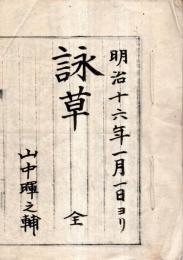 明治十六年一月一日ヨリ
詠草
全
山中暉之輔